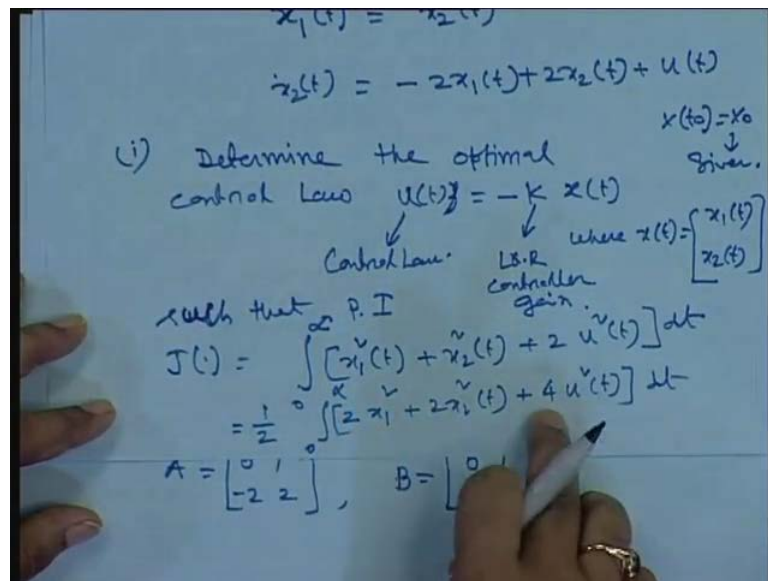 x₁(t) = x₂(t)
ẋ₂(t) = - 2x₁(t) + 2x₂(t) + u(t)
x(t₀) = x₀
↓
Given.
(i) Determine the optimal
control Law u(t) = - K x(t)
Control Law.
L.Q.R controller gain.
where x(t) = [x₁(t) x₂(t)]
such that P.I
J(.) = ∫₀^∞ [x₁²(t) + x₂²(t) + 2 u²(t)] dt
= 1/2 ∫₀^∞ [2 x₁² + 2x₂²(t) + 4 u²(t)] dt
A = [0 1 -2 2], B = [0